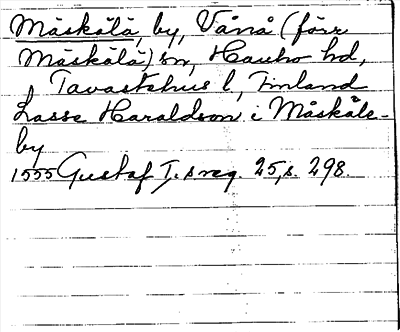 Mäskälä, by, Vånå (förr
Mäskälä) sn, Hauho hd,
Tavastehus l, Finland
Lasse Haraldson i Mäskåle-
by
1555 Gustaf I:s reg. 25, s. 298.